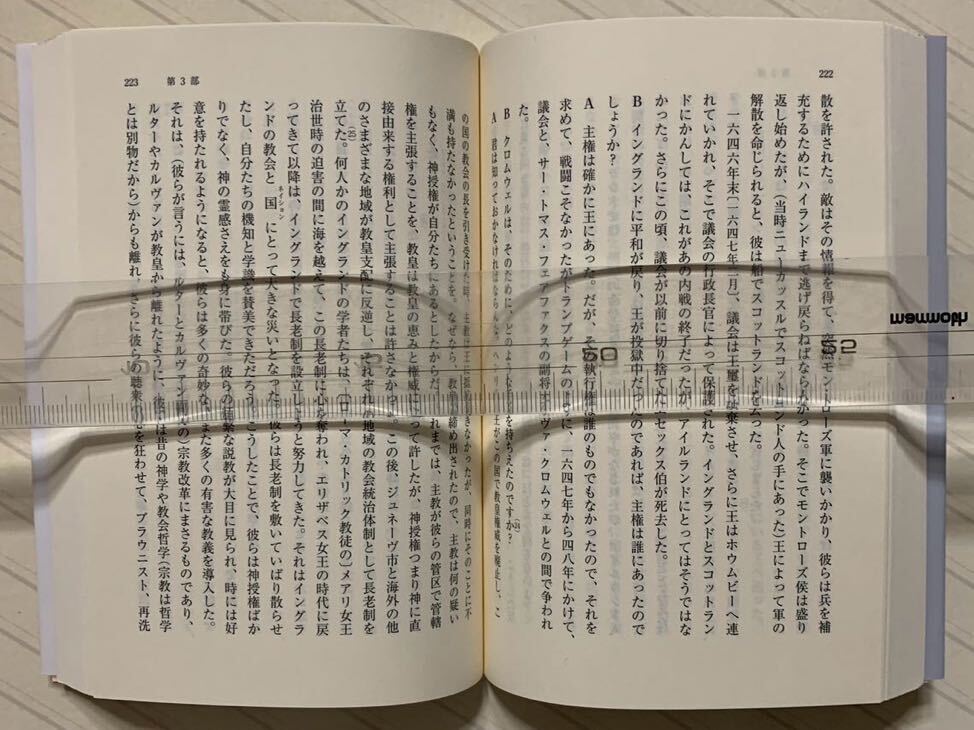 222
散を許された。敵はその情報を得て、突然モントローズ軍に襲いかかり、彼らは兵を補
充するためにハイランドまで逃げ戻らねばならなかった。そこでモントローズ侯は盛り
返し始めたが、(当時ニューカッスルでスコットランド人の手にあった)王によって軍の
解散を命じられると、彼は船でスコットランドを去った。
一六四六年末〔一六四七年一月〕、議会は王璽を破棄させ、さらに王はホウムビーへ連
れていかれ、そこで議会の行政長官によって保護された。イングランドとスコットラン
ドにかんしては、これがあの内戦の終了だったが、アイルランドにとってはそうではな
かった。さらにこの頃、議会が以前に切り捨てたエセックス伯が死去した。
B イングランドに平和が戻り、王が投獄中だったのであれば、主権は誰にあったので
しょうか?
A 主権は確かに王にあった。だが、その執行権は誰のものでもなかったので、それを
求めて、戦闘こそなかったがトランプゲームのように、一六四七年から四八年にかけて、
議会と、サー・トマス・フェアファクスの副将オリヴァ・クロムウェルとの間で争われ
た。
B クロムウェルは、そのために、どのような を持ちえたのですか?
A 君は知っておかなければならんな、ヘンリ 王がこの国で教皇権威を廃止し、こ
223 第3部
の国の教会の長を引き受けた時、主教は王に抵抗できなかったが、同時にそのことに不
満も持たなかったということを。なぜなら、教皇 締め出されたので、主教は何の疑い
もなく、神授権が自分たちにあるとしたからだ。それまでは、主教が彼らの管区で管轄
権を主張することを、教皇は教皇の恵みと権威によって許したが、神授権つまり神に直
接由来する権利として主張することは許さなかった。この後、ジュネーヴ市と海外の他
のさまざまな地域が教皇支配に反逆し、それぞれの地域の教会統治体制として長老制を
立てた。(25)何人かのイングランドの学者たちは、(〔ローマ・カトリック教徒の〕メアリ女王
治世時の迫害の間に海を越えて、この長老制に心を奪われ、エリザベス女王の時代に戻
ってきて以降は、イングランドで長老制を設立しようと努力してきた。それはイングラ
ンドの教会と国ネイションにとって大きな災いとなった。彼らは長老制を敷いていばり散らせ
たし、自分たちの機知と学識を賛美できただろう。こうしたことで、彼らは神授権ばか
りでなく、神の霊感さえをも身に帯びた。彼らの頻繁な説教が大目に見られ、時には好
意を持たれるようになると、彼らは多くの奇妙な、また多くの有害な教義を導入した。
それは、(彼らが言うには、ルターとカルヴァーン の)宗教改革にまさるものであり、
ルターやカルヴァンが教皇から離れたように、彼らは昔の神学や教会哲学(宗教は哲学
とは別物だから)からも離れ、さらに彼らの聴衆の心を狂わせて、ブラウニスト、再洗
mammoth
50
52